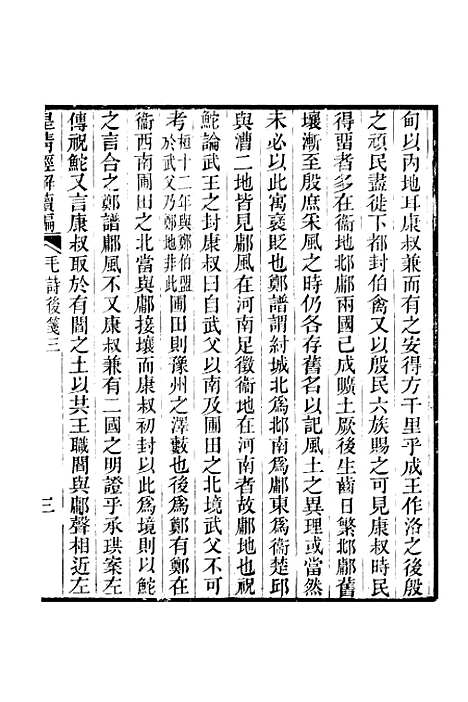 甸以內地耳康叔兼而有之安得方千里乎成王作洛之後殷
之頑民盡徙下都封伯禽又以殷民六族賜之可見康叔時民
得畱者多在衞地邶鄘兩國已成曠土厥後生齒日繁邶鄘舊
壤漸至殷庶采風之時仍各存舊名以記風土之異理或當然
未必以此寓襃貶也鄭譜謂紂城北爲邶南爲鄘東爲衞楚邱
與漕二地皆見鄘風在河南足徵衞地在河南者故鄘地也祝
鮀論武王之封康叔曰自武父以南及圃田之北境武父不可
考桓十二年與鄭伯盟於武父乃鄭地非此圃田則豫州之澤藪也後爲鄭有鄭在
衞西南圃田之北當與鄘接壤而康叔初封以此爲境則以鮀
之言合之鄭譜鄘風不又康叔兼有二國之明證乎承珙案左
傳祝鮀又言康叔取於有閻之土以共王職閻與鄘聲相近左
皇淸經解續編
毛詩後箋三
三